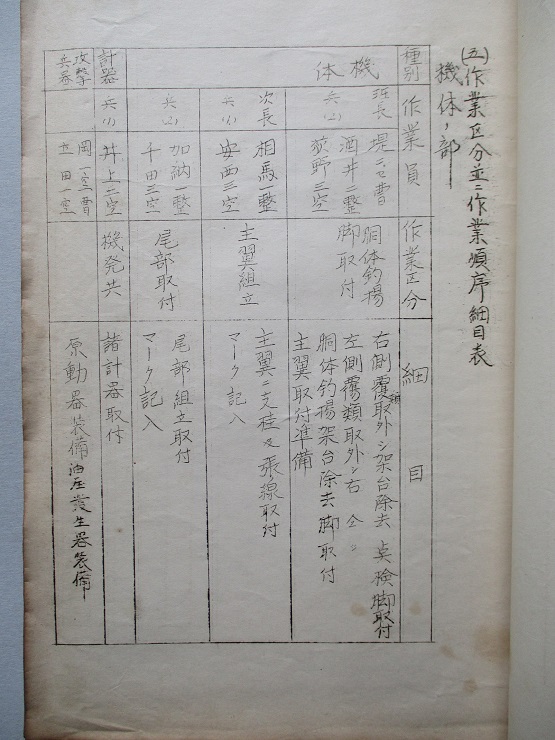 (五)作業区分並ニ作業順序細目表
機体ノ部
種別 作業員 作業区分 細目
機体
班長 堤二セ曹 胴体釣揚 右側覆類取外シ架台除去 点検脚取付
兵(2) 酒井二整 脚取付 左側覆類取外シ右仝シ
荻野三空 胴体釣揚架台除去脚取付
主翼取付準備
次長 相馬一整 主翼組立 主翼ニ支柱及張線取付
兵(1) 安西三空 マーク記入
兵(2) 加納一整 尾部取付 尾部組立取付
千田三空 マーク記入
計器 兵(1) 井上二空 機発共 諸計器取付
攻撃 岡一空曹 原動器装備油圧発生器装備
兵器 田一空